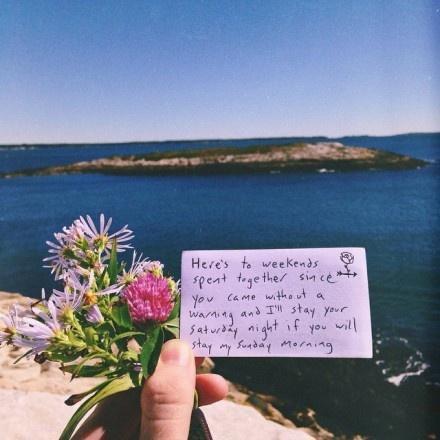 Here's to weekends
spent together since
you came without a
warning and I'll stay your
Saturday night if you will
stay my Sunday Morning